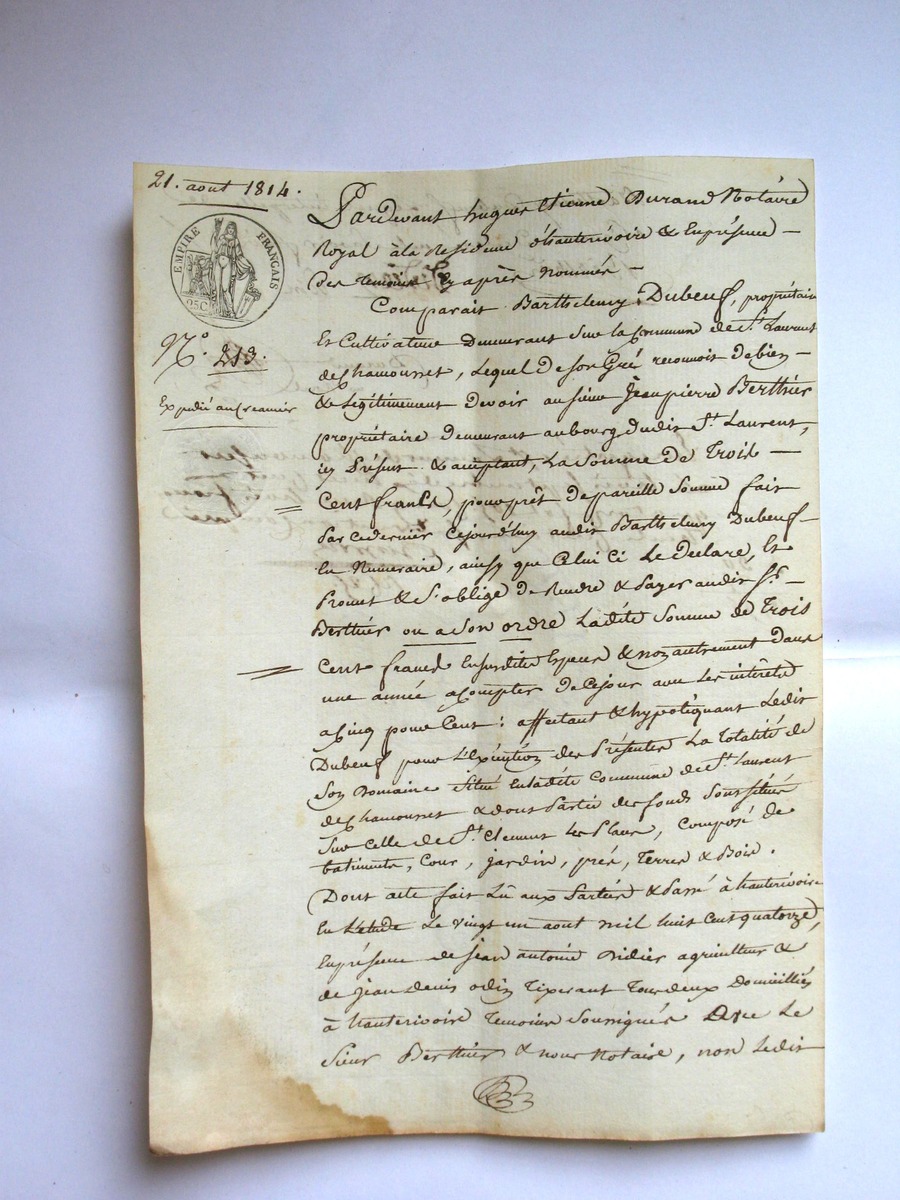 21. aout 1814.
EMPIRE FRANÇAIS
25C
N.º 213.
Expédié au Creancier
Pardevant hugues Etienne Durand Notaire
Royal à la Residence d'hauterivoire & En présence
Des temoins Cy après Nommés
Comparait Barthelemy Dubeuf, propriétaire
Et Cultivateur Demeurant Sur la Commune de St. Laurent
de Chamousset, Lequel De son Gré reconnoit de bien
& Legitimement Devoir au sieur Jean pierre Berthier
propriétaire Demeurant au bourg dudit St. Laurent,
icy Présent & acceptant, La Somme De Trois
Cent francs, pour prêt de pareille Somme fait
Par ce dernier Cejourd'huy audit Barthelemy Dubeuf
En Numeraire, ainsy que Celui Ci Le declare, Et
Promet & S'oblige de Rendre & Payer audit Sr.
Berthier ou a Son ordre Ladite Somme de Trois
Cent francs En susdites Especes & non autrement Dans
une année a Compter De Ce jour avec Les intérêts
a Cinq pour Cent : affectant & hypotéquant Ledit
Dubeuf pour L'Exécution des Présentes La Totalité de
Son Domaine Situé En ladite Commune de St. Laurent
de Chamousset & dont Partie des fonds Sont situés
Sur Celle de St. Clement Les Places, Composé de
batiments, Cour, jardin, prés, Terres & Bois.
Dont acte fait Lû aux Parties & Passé à hauterivoire
En L'etude Le vingt un aout mil huit Cent quatorze,
En présence de jean antoine Didier agriculteur &
de jean Denis odin Tixerant Tous deux Domiciliés
à hauterivoire Temoins Soussignés Avec Le
Sieur Berthier & nous Notaire, non Ledit